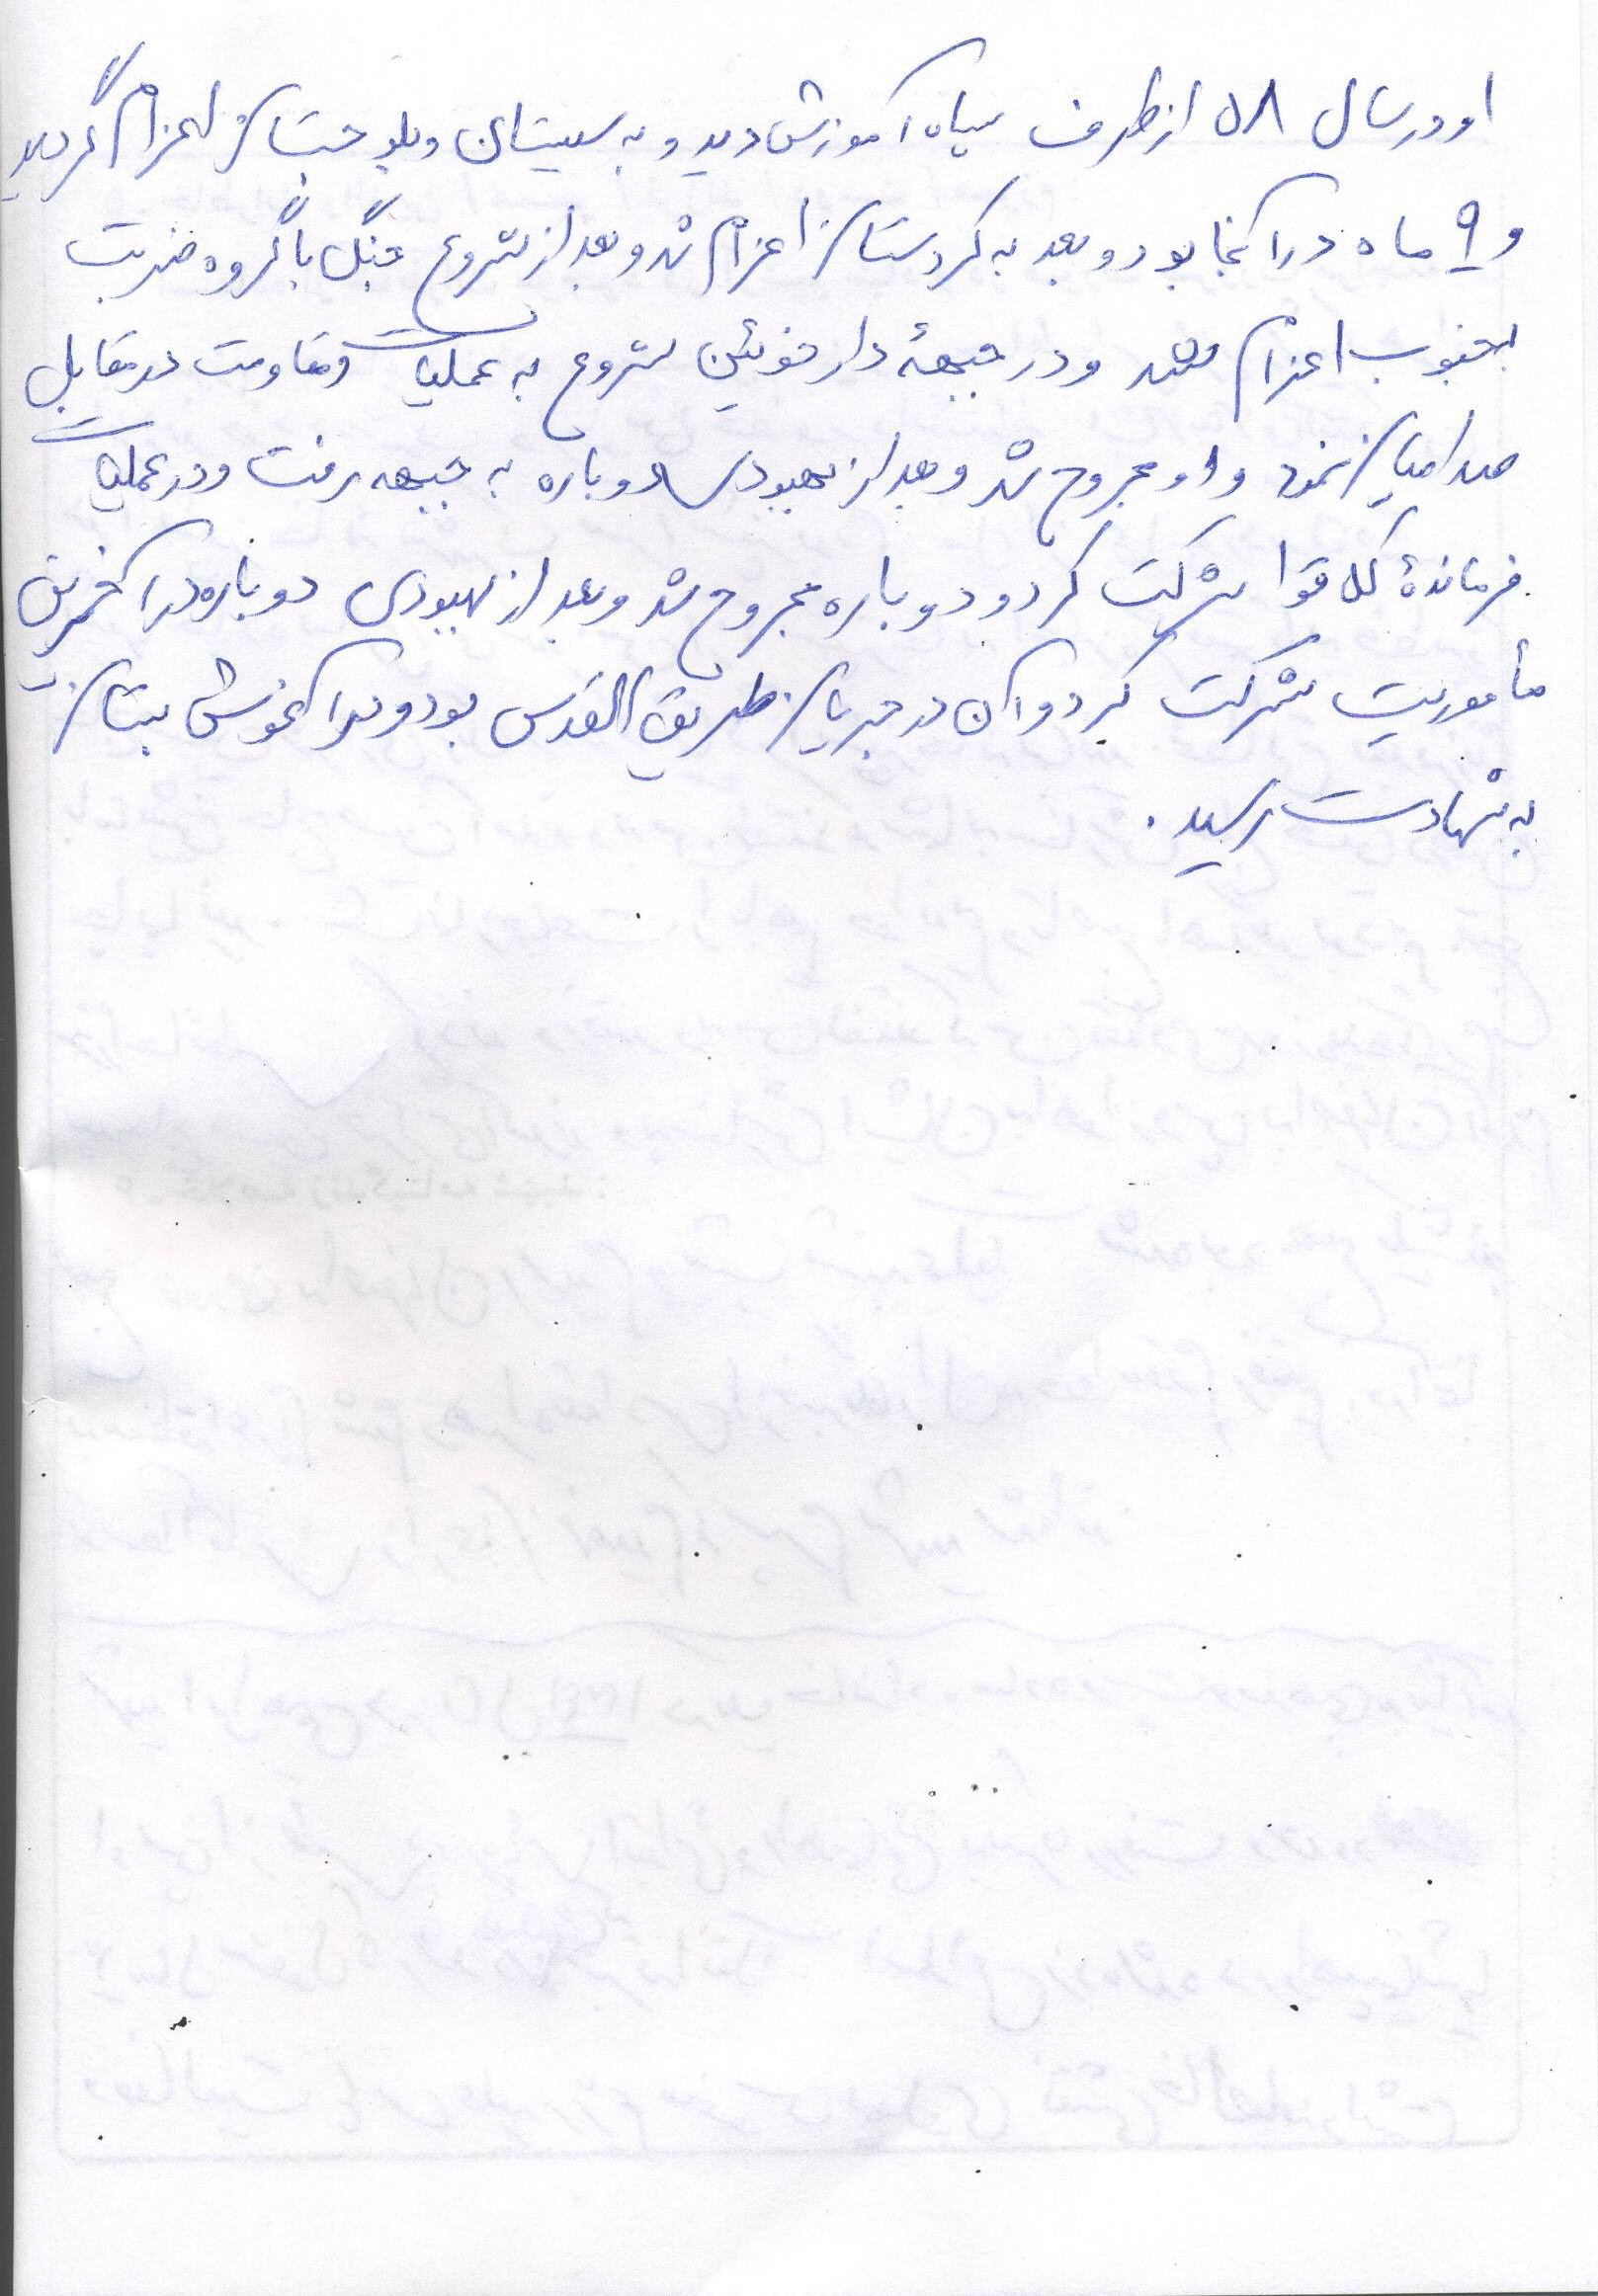 او در سال ۵۸ از طرف سپاه آموزش دید و به سیستان و بلوچستان اعزام گردید
و ۹ ماه در آنجا بود و بعد به کردستان اعزام شد و بعد از شروع جنگ با گروه ضربت
بجنوب اعزام شد و در جبههٔ دارخوئین شروع به عملیات و مقاومت در مقابل
صدامیان نمود و او مجروح شد و بعد از بهبودی دوباره به جبهه رفت و در عملیات
فرماندهٔ کل قوا شرکت کرد و دوباره مجروح شد و بعد از بهبودی دوباره در آخرین
مأموریت شرکت کرد و آن در جریان طریق القدس بود و در آغوش بستان
به شهادت رسید.